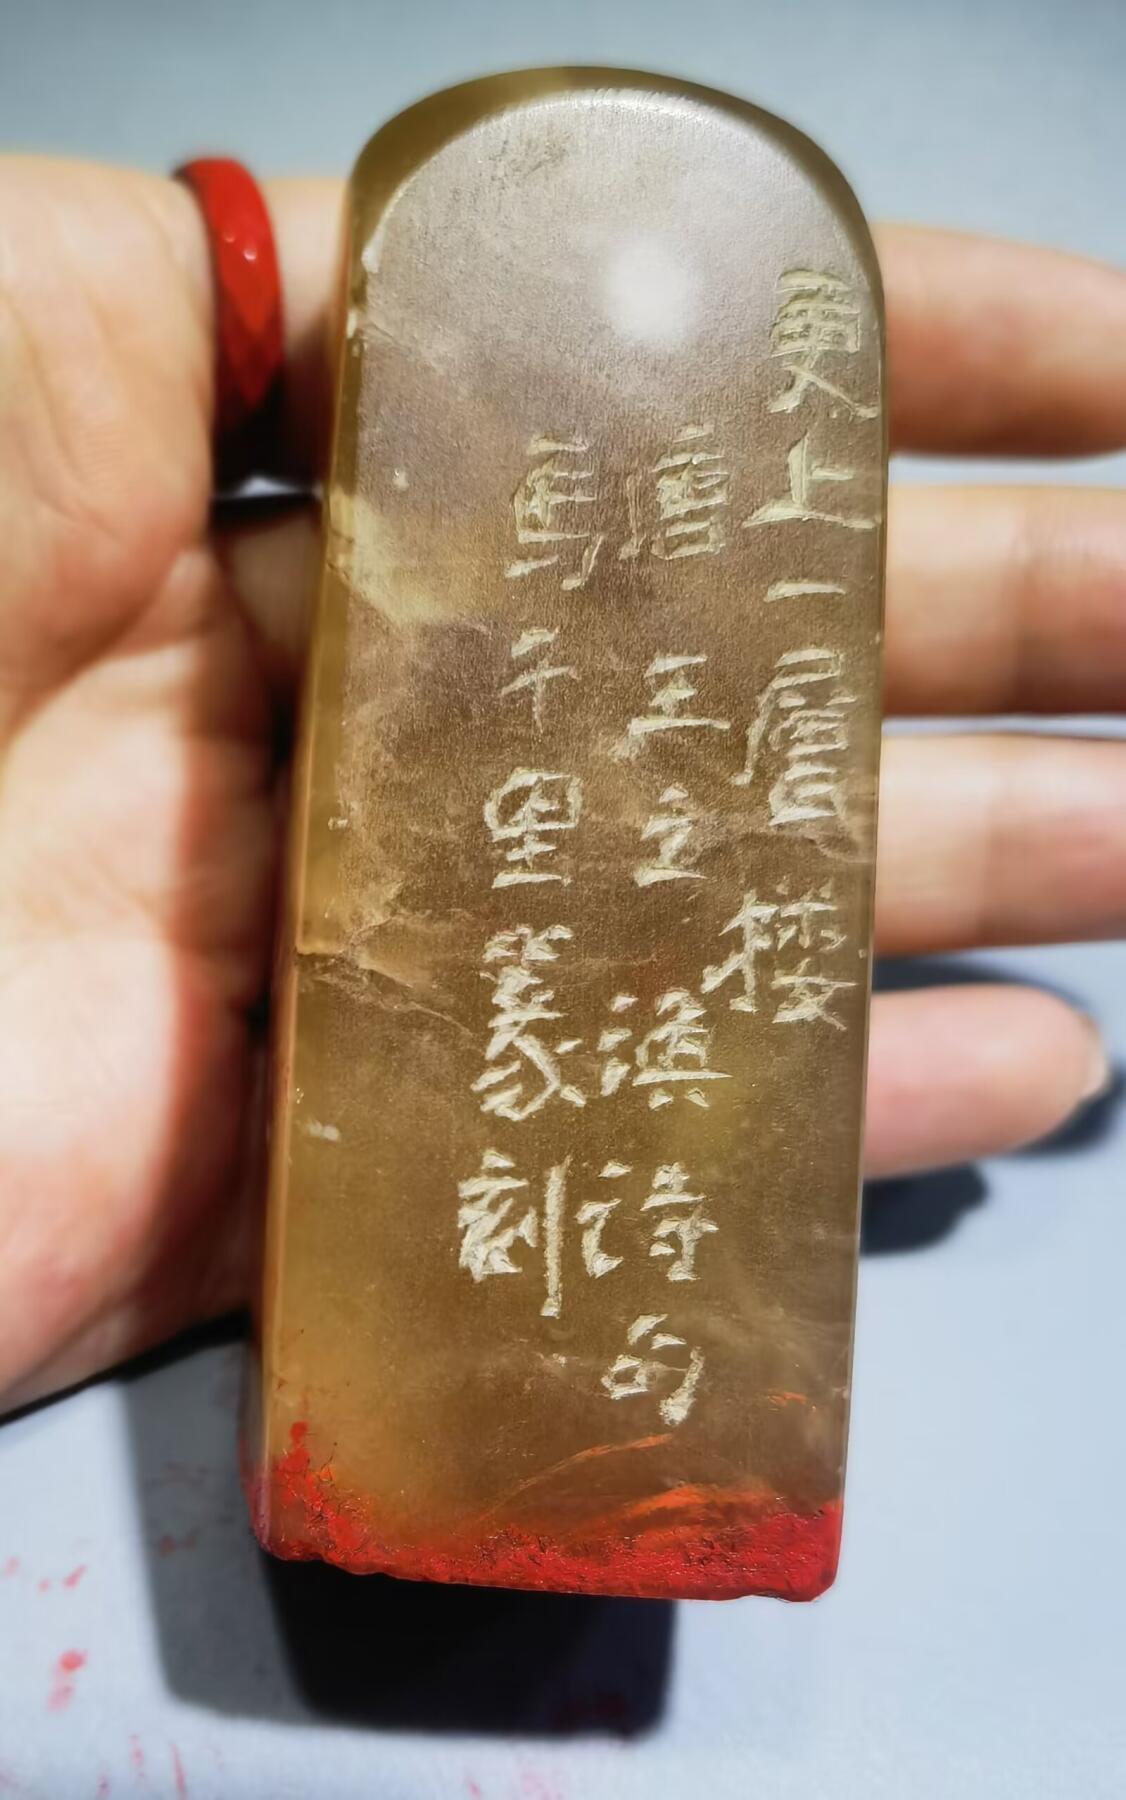 更上一層楼
唐王之渙詩句
馬千里篆刻